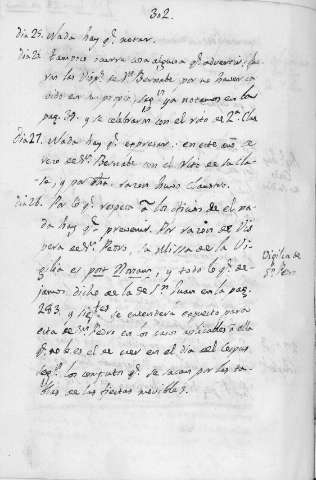 302.
Dia 25. Nada hay q.e notar.
Dia 26. Tampoco ocurre cosa alguna q.e advertir;
las Visp.s de S.n Bernabe, por no haver ca
ido en su propio, seg.n ya notamos en la
pag. 99. y se celebraron con el Rito de 2.a Cla
Dia 27. Nada hay q.e expresar: en este año se
rezo de S.n Bernabe con el Rito de su Cla
se, y por dha. razon huvo Claustro.
Dia 28. Por lo q.e respecta a los oficios de el na
da hay q.e prevenir. Por razon de Vis
pera de S.n Pedro, la Missa de la Vi
gilia es por Nona, y todo lo q.e de
jamos dicho de la de S.n Juan en la pag.
283 y sig.tes se entendera repuesto para
esta de S.n Pedro en los casos aplicables a ella
q.e no es el de caer en el dia del Corpus
seg.n los computos q.e se sacan por las ta
blas de las fiestas movibles.
Vigilia de
S.n Pedro